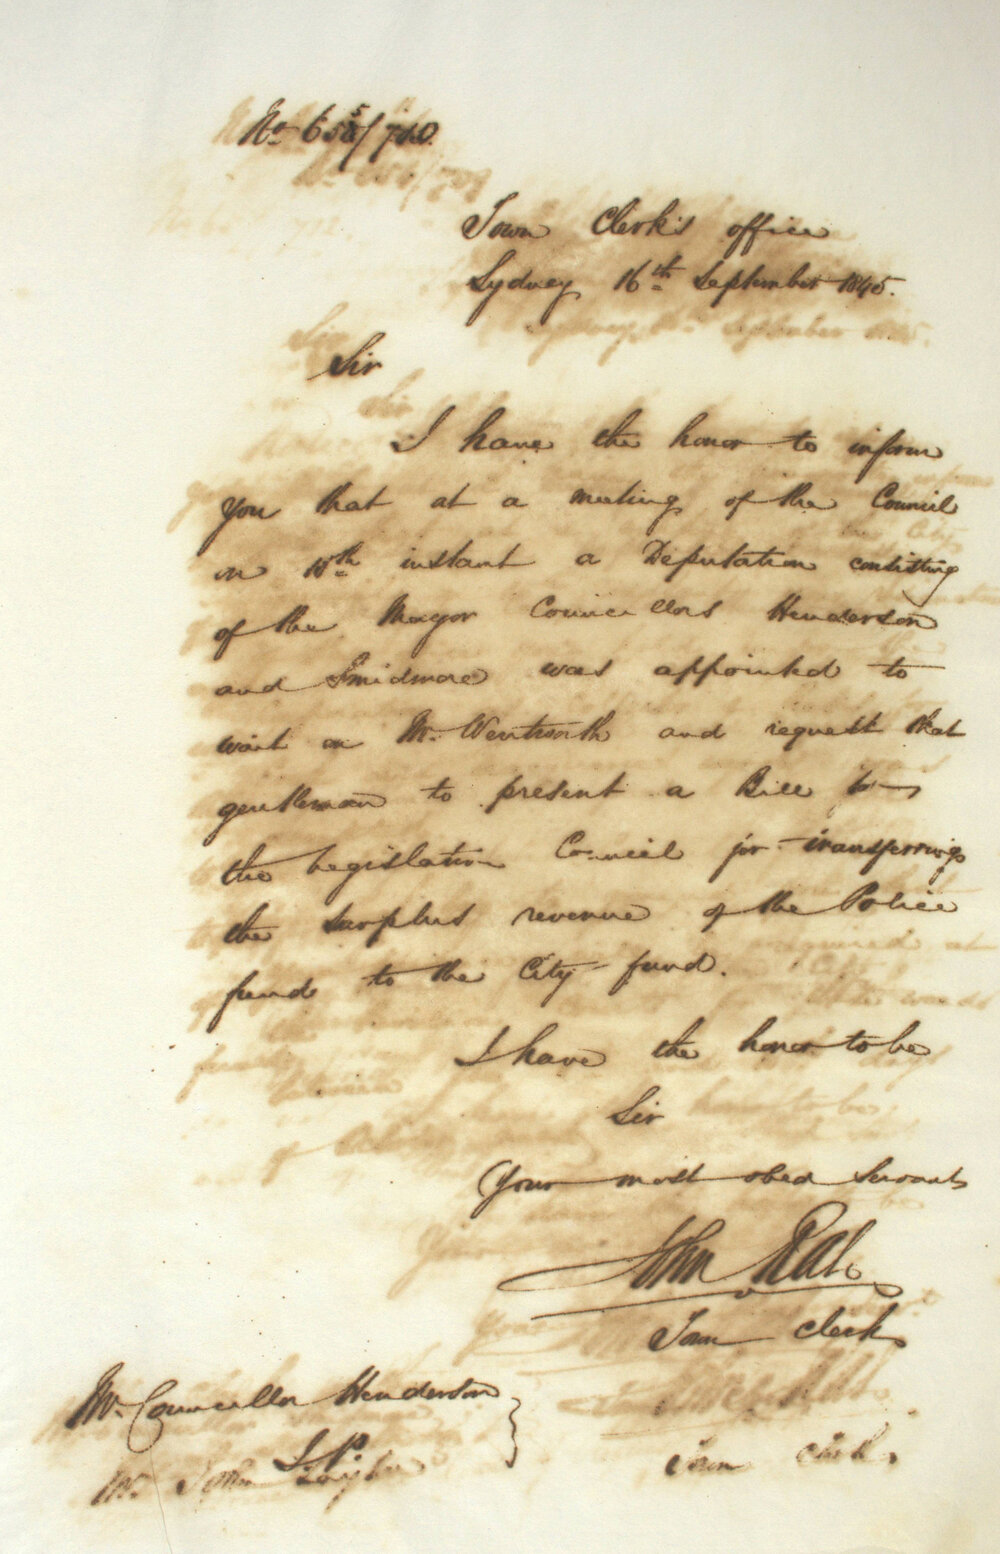 Town Clerk's office
Sydney 16th September 1845.
Sir
I have the honor to inform
you that at a meeting of the Council
on instant a Deputation consisting
of the Mayor Councillors Henderson
and Smidmore was appointed to
wait on Mr. Wentworth and request that
gentleman to present a Bill to
the Legislative Council for transferring
the surplus revenue of the Police
fund to the City fund.
I have the honor to be
Sir
Your most obed Servant
John Rae
Town Clerk
Mr. Councillor Henderson
Town Clerk.